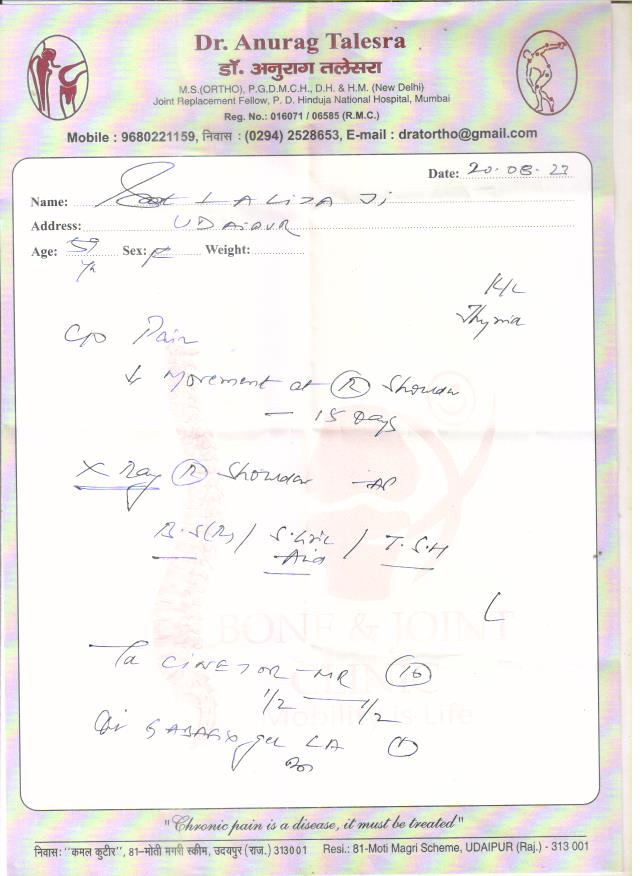 Dr. Anurag Talesra
डॉ. अनुराग तलेसरा
M.S.(ORTHO), P.G.D.M.C.H., D.H. & H.M. (New Delhi)
Joint Replacement Fellow, P. D. Hinduja National Hospital, Mumbai
Reg. No.: 016071 / 06585 (R.M.C.)
Mobile : 9680221159, निवास : (0294) 2528653, E-mail : dratortho@gmail.com
Date: 20.08.23
Name: LALITA Ji
Address: UDAIPUR
Age: 59 Sex: F Weight:
K/C
C/O Pain
↓ Movement at (R) Shoulder
— 15 Days
X Ray (R) Shoulder - AP
B.S(R) / S. Uric Acid / T.S.H
BONE & JOINT
CLINIC
Mobility is Life
Ta MR (10)
1/2 — 1/2
gel LA (1)
"Chronic pain is a disease, it must be treated"
निवास: "कमल कुटीर", 81-मोती मगरी स्कीम, उदयपुर (राज.) 313001 Resi.: 81-Moti Magri Scheme, UDAIPUR (Raj.) - 313 001